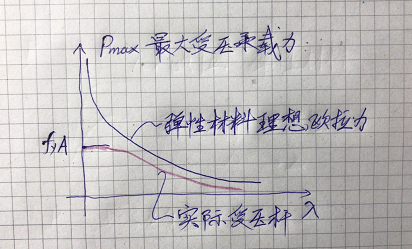 Pmax 最大受压承载力
弹性材料理想欧拉力
fyA
实际受压杆
λ